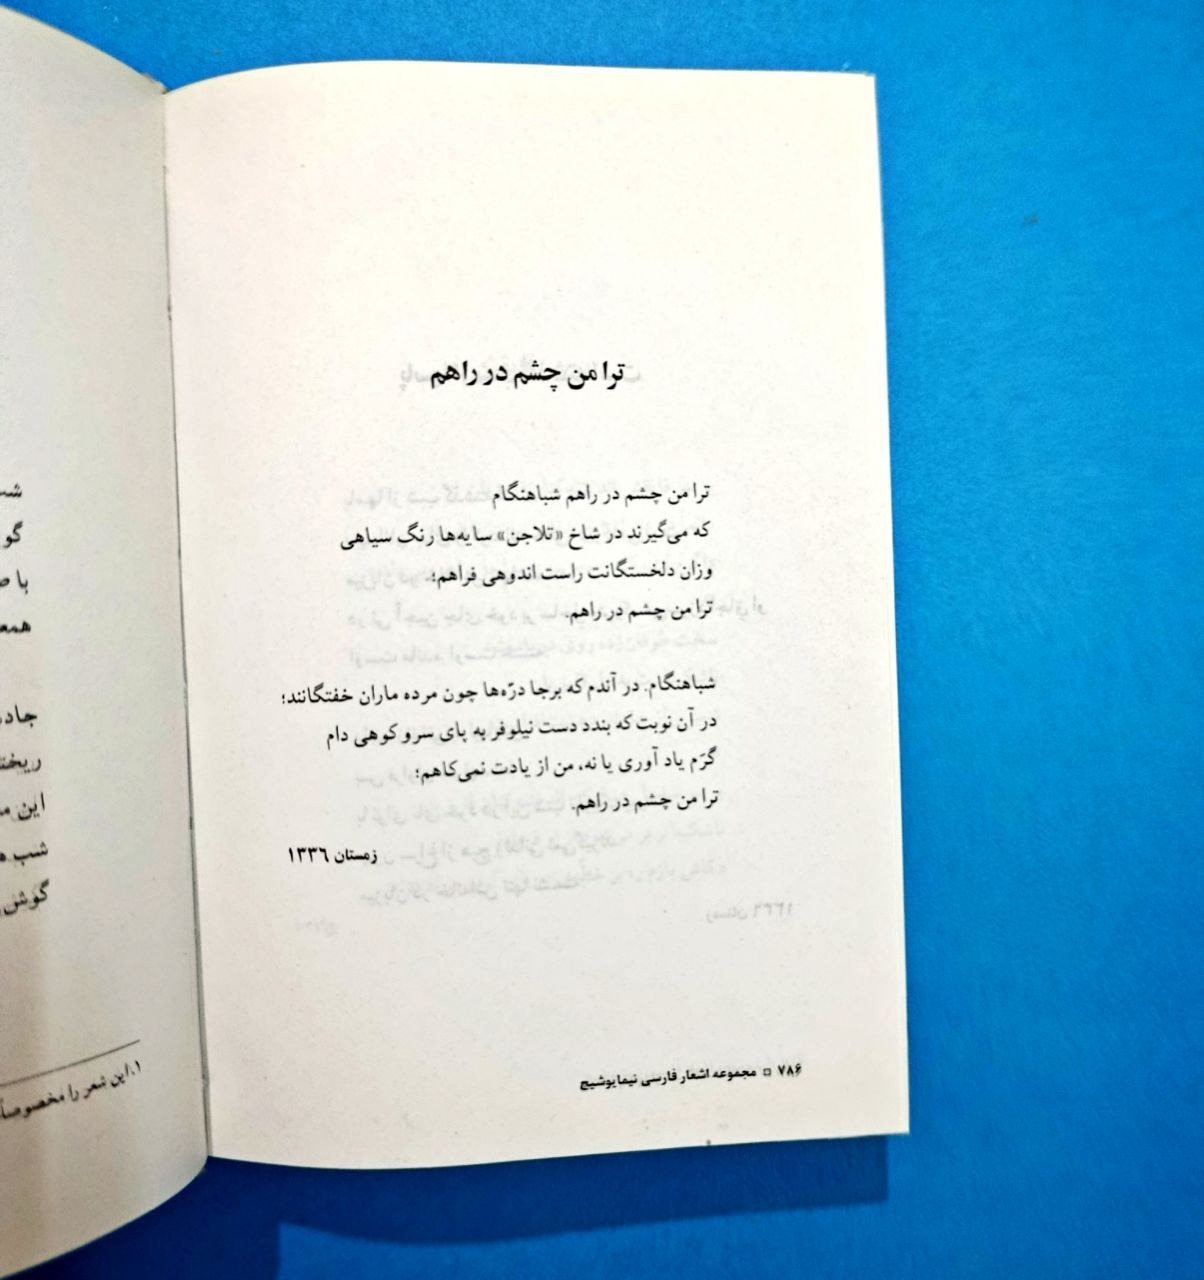 ترا من چشم در راهم
ترا من چشم در راهم شباهنگام
که می‌گیرند در شاخ «تلاجن» سایه‌ها رنگ سیاهی
وزان دلخستگانت راست اندوهی فراهم؛
ترا من چشم در راهم.
شباهنگام. در آندم که برجا درّه‌ها چون مرده ماران خفتگانند؛
در آن نوبت که بندد دست نیلوفر به پای سرو کوهی دام
گَرَم یاد آوری یا نه، من از یادت نمی‌کاهم؛
ترا من چشم در راهم.
زمستان ۱۳۳۶
۷۸۶ □ مجموعه اشعار فارسی نیما یوشیج
گو
با
جاده
این
شب
گوش
۱. این شعر را مخصوصاً